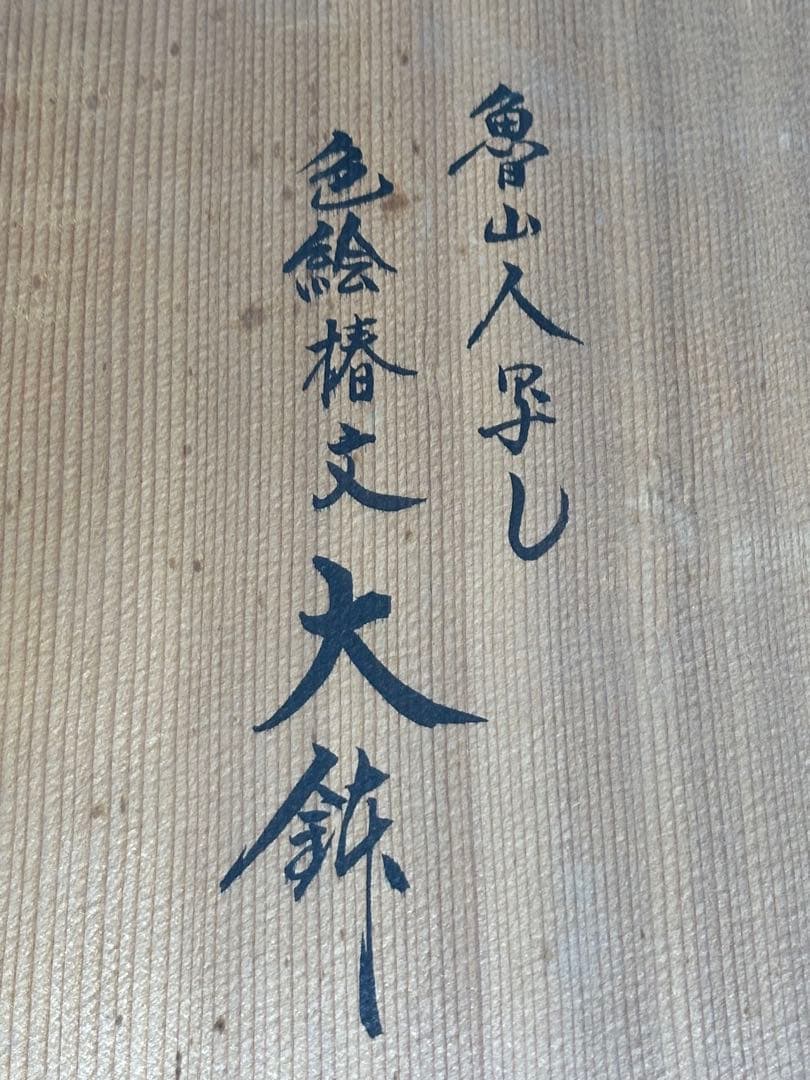 魯山人写し
色絵椿文大鉢